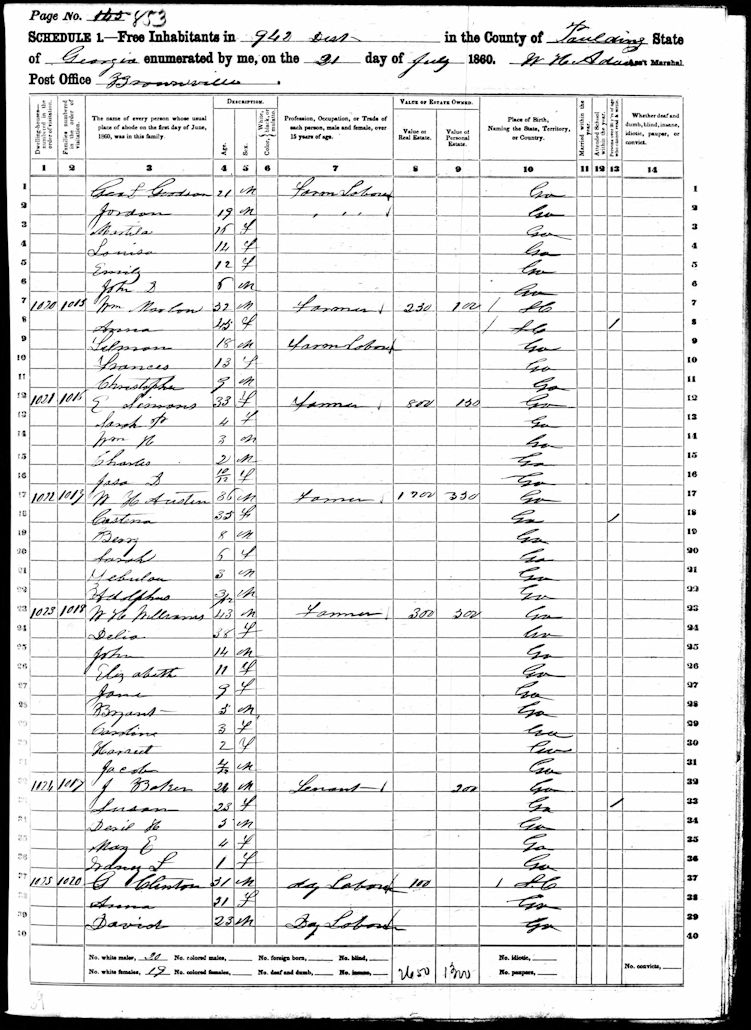 Page No. 165 853
SCHEDULE 1.—Free Inhabitants in 942 Dist in the County of Paulding State
of Georgia enumerated by me, on the 21 day of July 1860. W H Adair Ass't Marshal.
Post Office Brownville
Dwelling-houses—numbered in the order of visitation.
Families numbered in the order of visitation.
The name of every person whose usual place of abode on the first day of June, 1860, was in this family.
DESCRIPTION.
Age.
Sex.
Color, White, black, or mulatto.
Profession, Occupation, or Trade of each person, male and female, over 15 years of age.
VALUE OF ESTATE OWNED.
Value of Real Estate.
Value of Personal Estate.
Place of Birth, Naming the State, Territory, or Country.
Married within the year.
Attended School within the year.
Persons over 20 y'rs of age who cannot read & write.
Whether deaf and dumb, blind, insane, idiotic, pauper, or convict.
1 2 3 4 5 6 7 8 9 10 11 12 13 14
1 Geo L Goodson 21 M Farm Labour Ga 1
2 Jordon 19 M " " Ga 2
3 15 F Ga 3
4 Louisa 14 F Ga 4
5 Emily 12 F Ga 5
6 John D M Ga 6
7 1020 1015 Wm 32 M Farmer 230 100 / SC 7
8 F / SC / 8
9 18 M Farm Labour Ga 9
10 Frances 13 F Ga 10
11 Christopher 9 M Ga 11
12 1021 1016 E Simons 33 F Farmer 800 150 Ga 12
13 Sarah 4 F Ga 13
14 Wm 3 M Ga 14
15 Charles 2 M Ga 15
16 10/12 F Ga 16
17 1022 1017 W H Austin 36 M Farmer 350 Ga 17
18 35 F Ga / 18
19 Berry 8 M Ga 19
20 Sarah 5 F Ga 20
21 Zebulon 3 M Ga 21
22 Adolphus M Ga 22
23 1023 1018 W H Williams 43 M Farmer 300 Ga 23
24 Delia 38 F Ga 24
25 John 14 M Ga 25
26 Elizabeth 11 F Ga 26
27 Jane 9 F Ga 27
28 Bryant 5 M Ga 28
29 Caroline 3 F Ga 29
30 Harriet 2 F Ga 30
31 Jacob M Ga 31
32 1024 J Baker M Tenant 200 Ga 32
33 Susan 23 F Ga / 33
34 M Ga 34
35 May E 4 F Ga 35
36 1 F Ga 36
37 1025 1020 G Clinton 31 M day Labour 100 / SC 37
38 Anna 21 F Ga 38
39 David 23 M Day Labour Ga 39
40 40
No. white males, 20 No. colored males, No. foreign born, No. blind, No. idiotic,
No. white females, 19 No. colored females, No. deaf and dumb, No. insane, 2650 1300 No. paupers, No. convicts,